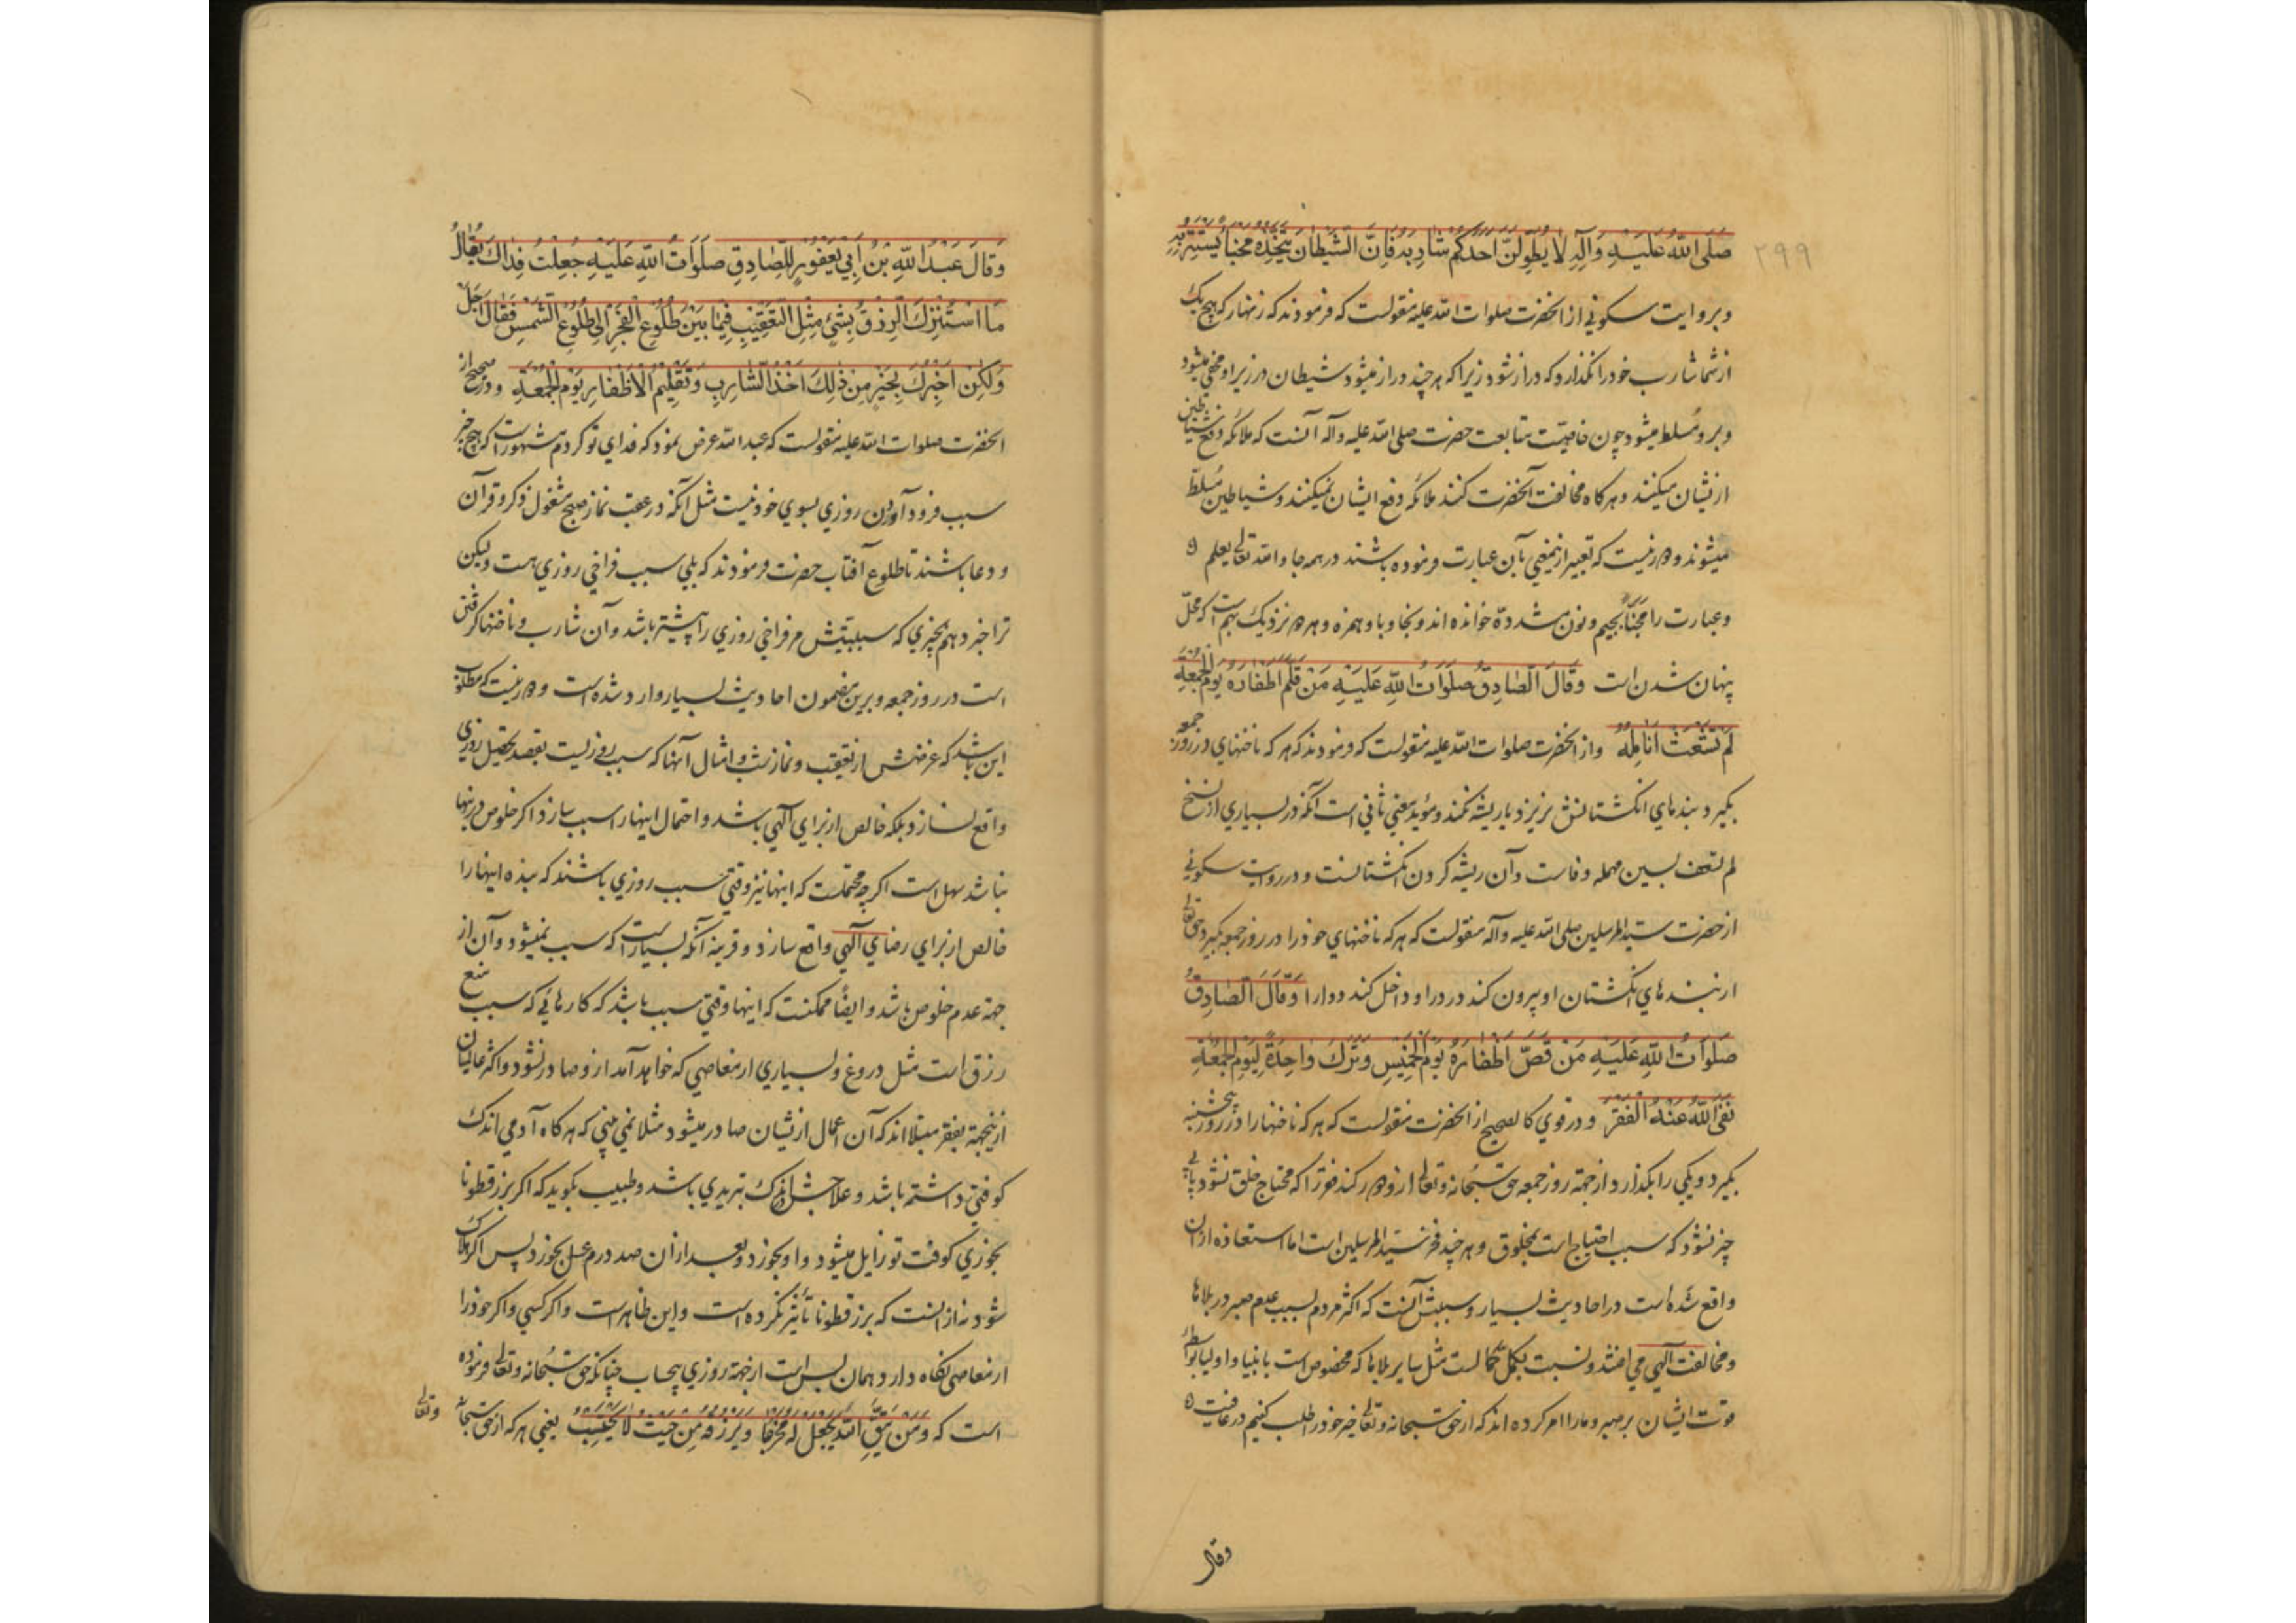 ۲۹۹
صَلَّی اللّهُ عَلَیْهِ وَآلِهِ لَا یُطَوِّلَنَّ اَحَدُکُمْ شَارِبَهُ فَاِنَّ الشَّیْطَانَ یَتَّخِذُهُ مَخْبَأً یَسْتَتِرُ بِهِ
وبروایت سکونی از انحضرت صلوات الله علیه منقولست که فرمودند که زنهار که هیچ یک
از شما شارب خود را نکذارد که دراز شود زیرا که هر چند دراز میشود شیطان در زیر او مخفی میشود
وبرو مسلط میشود چون خاصیّت متابعت حضرت صلی الله علیه وآله آنست که ملائکه دفع شیاطین
از نشان میکنند و هرکاه مخالفت آنحضرت کنند ملائکه دفع ایشان نمیکنند و شیاطین مُسلّط
میشوند و دور نیست که تعبیر از نمعنی بآن عبارت فرموده باشند در همه جا والله تعالی یعلم
وعبارت را مِجَنّاً بجیم ونون مشدده خوانده اند وبخا وبا وهمزه وهر دو نزدیک بهم است که محلّ
پنهان شدن است وَقَالَ الصَّادِقُ صَلَوَاتُ اللّهِ عَلَیْهِ مَنْ قَلَّمَ اَظْفَارَهُ یَوْمَ الْجُمُعَةِ
لَمْ تَشْعَثْ اَنَامِلُهُ واز انحضرت صلوات الله علیه منقولست که فرمودند که هر که ناخنهای در روز جمعه
بکیرد بندهای انکشتانش نریزد یا ریشه نکند ومؤید معنی ثانی است آنکه در بسیاری از نسخ
لم تسعف بسین مهمله وفاست وآن ریشه کردن انکشتانست ودر روایت سکونی
از حضرت سیّد المرسلین صلی الله علیه وآله منقولست که هر که ناخنهای خود را در روز جمعه بکیرد حق تعالی
از بندهای انکشتان او بیرون کند درد را و داخل کند دوا را وَقَالَ الصَّادِقُ
صَلَوَاتُ اللّهِ عَلَیْهِ مَنْ قَصَّ اَظْفَارَهُ یَوْمَ الْخَمِیسِ وَتَرَکَ وَاحِدَةً لِیَوْمِ الْجُمُعَةِ
نَفَی اللّهُ عَنْهُ الْفَقْرَ ودر قوی کالصحیح از انحضرت منقولست که هر که ناخنها را در روز پنجشنبه
بکیرد ویکی را بکذارد از جهة روز جمعه حق سُبحانه وتعالی ازو دور کند فقر را که محتاج خلق نشود یا بی
چیز نشود که سبب احتیاج است بمخلوق وهر چند فقر فخر سیّد المرسلین است اما استعاذه ازان
واقع شده است در احادیث بسیار وسببش آنست که اکثر مردم بسبب عدم صبر در بلاها
ومخالفت آلهی می افتند ونسبت بکمل کمالست مثل سایر بلاها که مخصوص است بانبیا واولیا بواسطهٔ
قوّت ایشان بر صبر وما را امر کرده اند که از حق سبحانه وتعالی خیر خود را طلب کنیم در عافیت
وقال
وَقَالَ عَبْدُ اللّهِ بْنُ اَبِی یَعْفُورٍ لِلصَّادِقِ صَلَوَاتُ اللّهِ عَلَیْهِ جُعِلْتُ فِدَاکَ یُقَالُ
مَا اسْتُنْزِلَ الرِّزْقُ بِشَیْءٍ مِثْلِ التَّعْقِیبِ فِیمَا بَیْنَ طُلُوعِ الْفَجْرِ اِلَی طُلُوعِ الشَّمْسِ فَقَالَ اَجَلْ
وَلَکِنْ اُخْبِرُکَ بِخَیْرٍ مِنْ ذَلِکَ اَخْذُ الشَّارِبِ وَتَقْلِیمُ الْاَظْفَارِ یَوْمَ الْجُمُعَةِ ودر صحیح از
انحضرت صلوات الله علیه منقولست که عبد الله عرض نمود که فدای تو کردم مشهور است که هیچ چیز
سبب فرود آوردن روزی بسوی خود نیست مثل آنکه در عقب نماز صبح مشغول ذکر وقرآن
ودعا باشند تا طلوع آفتاب حضرت فرمودند که بلی سبب فراخی روزی هست ولیکن
ترا خبر دهم بچیزی که سببیّتش مر فراخی روزی را بیشتر باشد وآن شارب وناخنها کرفتن
است در روز جمعه وبرین مضمون احادیث بسیار وارد شده است و دور نیست که مطلوب
این باشد که غرضش از تعقیب ونماز شب وامثال آنها که سبب روزیست بقصد تحصیل روزی
واقع نسازد بلکه خالص از برای آلهی باشد واحتمال اینها را سبب سازد اکر خلوص در نیتها
نباشد سهل است اکرچه محتملست که اینها نیز وقتی سبب روزی باشند که بنده اینها را
خالص از برای رضای آلهی واقع سازد وقرینه آنکه بسیار است که سبب نمیشود وآن از
جهة عدم خلوص باشد وایضاً ممکنست که اینها وقتی سبب باشد که کارهائی که سبب منع
رزق است مثل دروغ وبسیاری از معاصی که خواهد آمد ازو صادر نشود واکثر عالمیان
ازینجهة بفقر مبتلا اند که آن اعمال ازنشان صادر میشود مثلا نمی بینی که هرکاه آدمی اندک
کوفتی داشته باشد وعلاجش اندک تبریدی باشد وطبیب بکوید که اکر بزرقطونا
بخوری کوفت تو زایل میشود واو بخورد وبعد ازان صد درم عسل بخورد پس اکر هلاک
شود نه ازانست که بزرقطونا تأثیر نکرده است واین ظاهر است واکر کسی واکر خود را
از معاصی نکاه دارد همان بس است از جهة روزی بیحساب چنانکه حق سُبحانه وتعالی فرموده
است که وَمَنْ یَتَّقِ اللّهَ یَجْعَلْ لَهُ مَخْرَجًا وَیَرْزُقْهُ مِنْ حَیْثُ لَا یَحْتَسِبُ یعنی هر که از حق سبحانه وتعالی